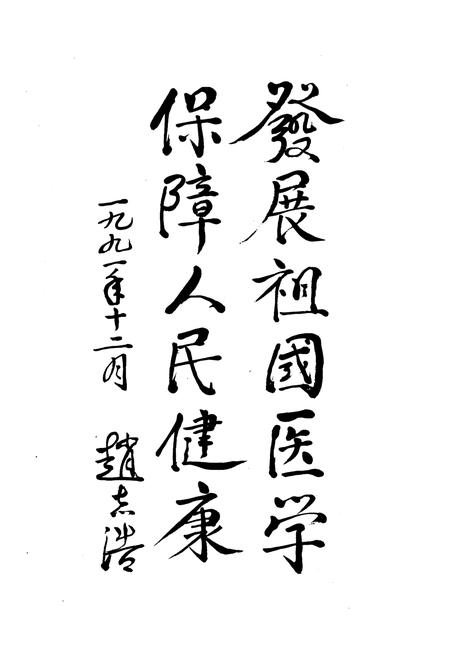 發展祖國医学
保障人民健康
一九九一年十二月
趙志浩